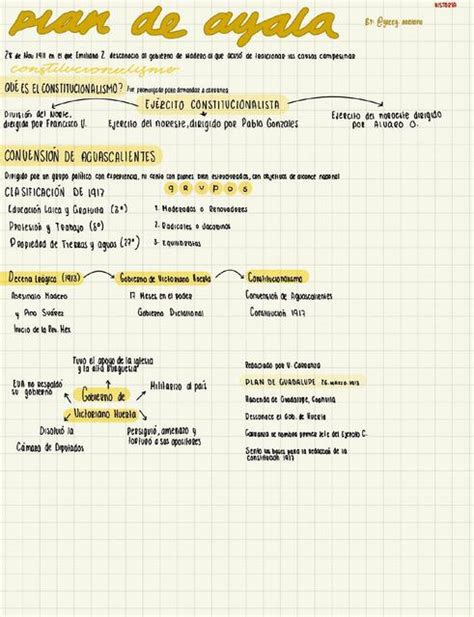 HISTORIA
plan de ayala
28 de Nov 1911 en el que Emiliano Z. desconoció al gobierno de Madero al que acusó de traicionar las causas campesinas
constitucionalismo
QUÉ ES EL CONSTITUCIONALISMO? Fue promulgado para demandar a
EJÉRCITO CONSTITUCIONALISTA
División del Norte,
dirigida por Francisco V.
Ejercito del noreste, dirigido por Pablo Gonzales
Ejercito del noroeste dirigido
por Alvaro O.
CONVENSIÓN DE AGUASCALIENTES
Dirigido por un grupo político con experiencia, ni tenía con planes bien estructurados, con objetivos de alcance nacional
CLASIFICACIÓN DE 1917
Educación Laica y Gratuita (3°)
Profesión y Trabajo (5°)
Propiedad de Tierras y aguas (27°)
grupos
1. Moderados o Renovadores
2. Radicales o Jacobinos
3. Equilibristas
Decena trágica (1913)
Asesinato Madero
y Pino Suárez
Inicio de la Rev. Mex
Gobierno de Victoriano Huerta
17 Meses en el poder
Gobierno Dictatorial
Constitucionalismo
Convensión de Aguascalientes
Constitución 1917
Tuvo el apoyo de la iglesia
y la alta burguesía
EUA no respaldó
su gobierno
Militarizo al país
Gobierno de
Victoriano Huerta
Disolvió la
Cámara de Diputados
Persiguió, amenazo y
torturo a sus opositores
Redactado por V. Carranza
PLAN DE GUADALUPE 26. MARZO. 1913
Hacienda de Guadalupe, Coahuila
Desconoce el Gob. de Huerta
Carranza se nombra primer jefe del Ejercito C.
Sento las bases para la redacción de la
constitución 1917